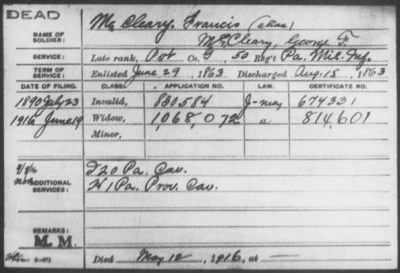 DEAD
NAME OF SOLDIER: McCleary, Francis (alias)
McCleary, George F.
SERVICE: Late rank, Pvt Co. G, 50 Reg't Pa. Mil. Inf.
TERM OF SERVICE: Enlisted June 29, 1863 Discharged Aug. 15, 1863
DATE OF FILING. CLASS. APPLICATION NO. LAW. CERTIFICATE NO.
1890 July 23 Invalid, 830584 674331
1916 June 19 Widow, 1,068,072 a 814,601
Minor,
ADDITIONAL SERVICES: D 20 Pa. Cav.
H 1 Pa. Prov. Cav.
REMARKS:
M. M.
Died May 12, 1916, at —